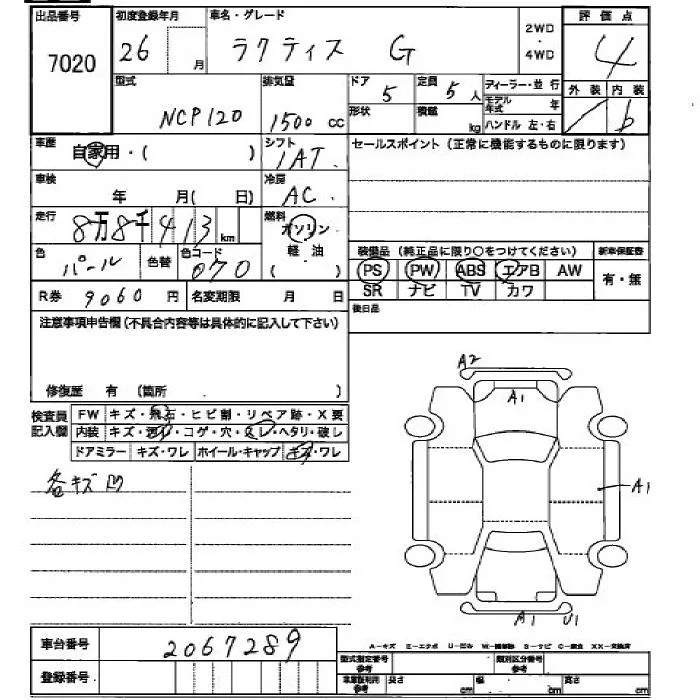 出品番号 初度登録年月 車名・グレード 2WD・4WD 評価点
7020 26 月 ラクティス G 4
型式 排気量 ドア 5 定員 5人 ディーラー・並行 外装 内装
NCP120 1500 cc 形状 積載 kg モデル年式 年 ハンドル 左・右 b
車歴 自家用・( ) シフト 1AT セールスポイント (正常に機能するものに限ります)
車検 年 月(日) 冷房 AC
走行 8万8千413km 燃料 ガソリン 軽油 ( )
装備品 (純正品に限り○をつけてください) 新車保証書
色 パール 色替 色コード 070 PS PW ABS エアB AW 有・無
R券 9060円 名変期限 月 日 SR ナビ TV カワ
注意事項申告欄(不具合内容等は具体的に記入して下さい) 後日品
修復歴 有 (箇所 )
検査員記入欄 FW キズ・飛石・ヒビ割・リペア跡・X要
内装 キズ・汚れ・コゲ・穴・スレ・ヘタリ・破レ
ドアミラー キズ・ワレ ホイール・キャップ キズ・ワレ
各キズ凹
A2
A1
A1
A1 U1
A-キズ E-エクボ U-凹み W-補修跡 S-サビ C-腐食 XX-交換済
車台番号 2067289
登録番号 型式指定番号 参考 類別区分番号 参考
車庫証明用 参考 長さ cm 幅 cm 高さ cm